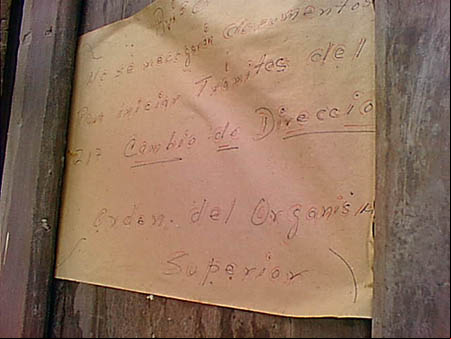 ¡¡ Aviso
No se recogerán documentos
Para iniciar Trámites del
217 Cambio de Direccio
Orden del Organis
(Superior)